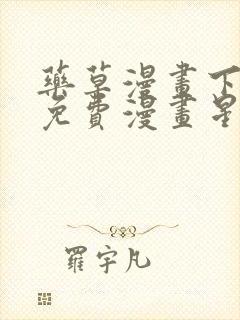 藥草漫畫下
免費漫畫星
羅宇凡